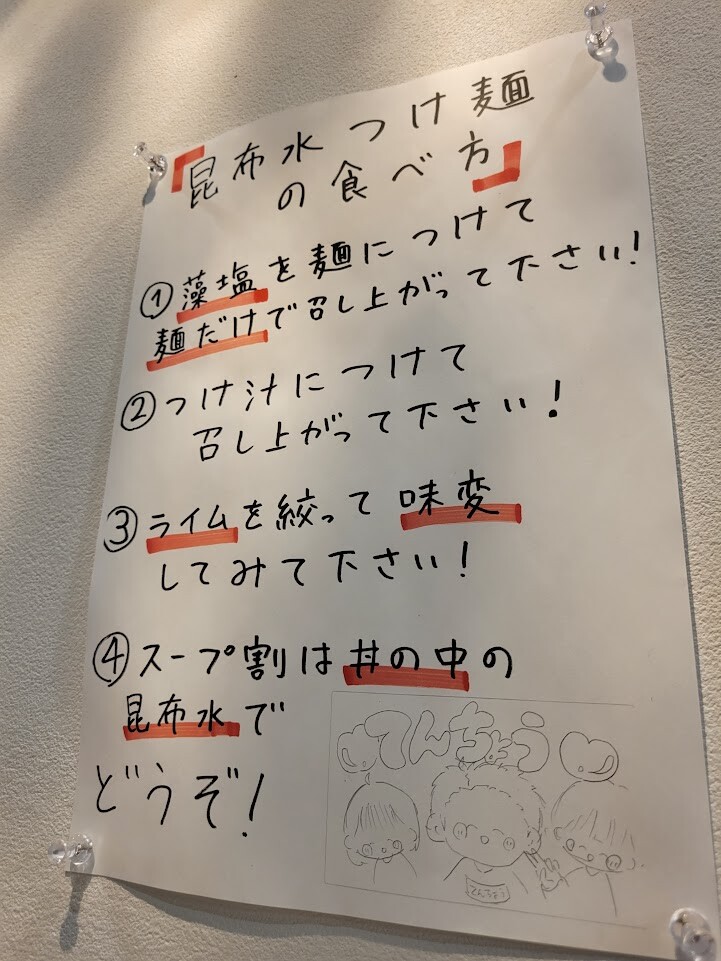 「昆布水つけ麺
の食べ方」
①藻塩を麺につけて
麺だけで召し上がって下さい!
②つけ汁につけて
召し上がって下さい!
③ライムを絞って味変
してみて下さい!
④スープ割は丼の中の
昆布水で
どうぞ!
てんちょう
てんちょう